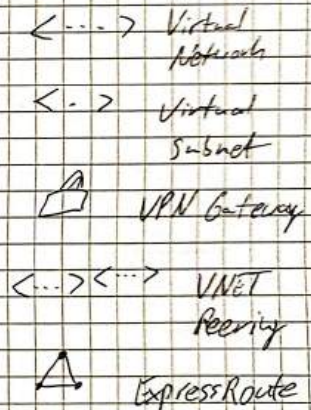 Virtual
Network
Virtual
Subnet
VPN Gateway
VNET
Peering
ExpressRoute